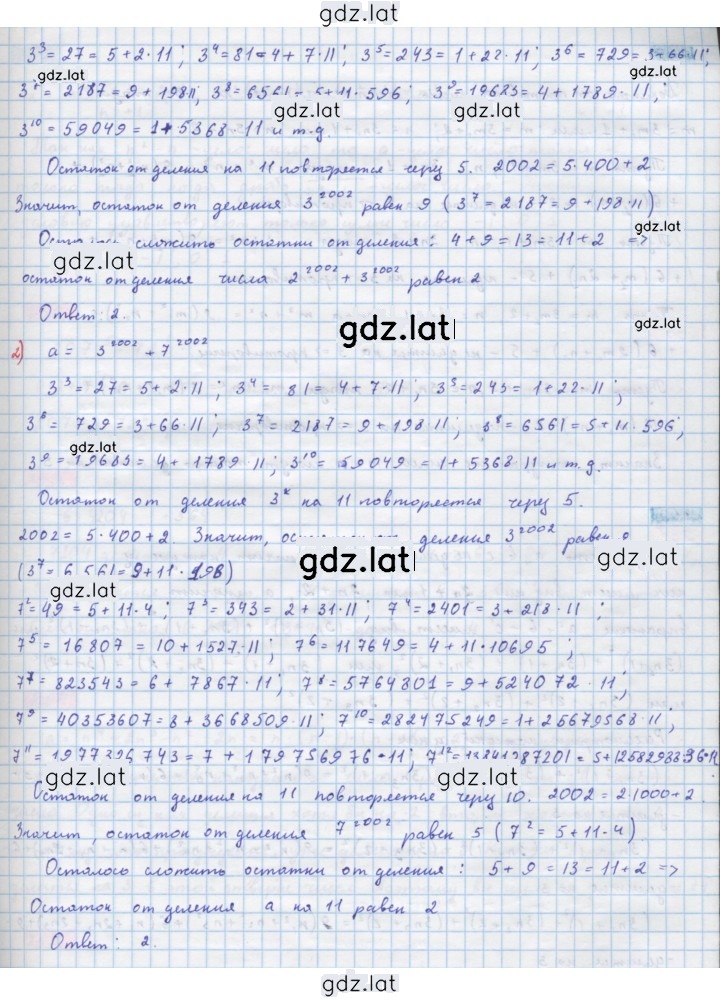 gdz.lat
3³ = 27 = 5 + 2·11; 3⁴ = 81 = 4 + 7·11; 3⁵ = 243 = 1 + 22·11; 3⁶ = 729 = 3 + 66·11;
gdz.lat gdz.lat
3⁷ = 2187 = 9 + 198·11; 3⁸ = 6561 = 5 + 11·596; 3⁹ = 19683 = 4 + 1789·11;
gdz.lat gdz.lat
3¹⁰ = 59049 = 1 + 5368·11 и т.д.
Остаток от деления на 11 повторяется через 5. 2002 = 5·400 + 2
Значит, остаток от деления 3²⁰⁰² равен 9 (3⁷ = 2187 = 9 + 198·11)
gdz.lat
сложить остатки от деления: 4 + 9 = 13 = 11 + 2 =>
gdz.lat
остаток от деления числа 2²⁰⁰² + 3²⁰⁰² равен 2
Ответ: 2.
gdz.lat
2) a = 3²⁰⁰² + 7²⁰⁰²
3³ = 27 = 5 + 2·11; 3⁴ = 81 = 4 + 7·11; 3⁵ = 243 = 1 + 22·11;
gdz.lat
3⁶ = 729 = 3 + 66·11; 3⁷ = 2187 = 9 + 198 11; 3⁸ = 6561 = 5 + 11·596;
gdz.lat
3⁹ = 19683 = 4 + 1789·11; 3¹⁰ = 59049 = 1 + 5368 11 и т.д.
gdz.lat
Остаток от деления 3ˣ на 11 повторяется через 5.
2002 = 5·400 + 2. Значит, деления 3²⁰⁰² равен
gdz.lat
(3⁷ = 6561 = 9 + 11·198)
gdz.lat
7² = 49 = 5 + 11·4; 7³ = 343 = 2 + 31·11; 7⁴ = 2401 = 3 + 218·11;
7⁵ = 16807 = 10 + 1527·11; 7⁶ = 117649 = 4 + 11·10695;
7⁷ = 823543 = 6 + 7867·11; 7⁸ = 5764801 = 9 + 524072·11;
gdz.lat
7⁹ = 40353607 = 8 + 3668509·11; 7¹⁰ = 282475249 = 1 + 25679568·11;
7¹¹ = 1977326743 = 7 + 179756976·11; 7¹² =
gdz.lat gdz.lat
Остаток от деления на 11 повторяется через 10. 2002 = 2·1000 + 2.
Значит, остаток от деления 7²⁰⁰² равен 5 (7² = 5 + 11·4)
Осталось сложить остатки от деления: 5 + 9 = 13 = 11 + 2 =>
Остаток от деления a на 11 равен 2
Ответ: 2.
gdz.lat